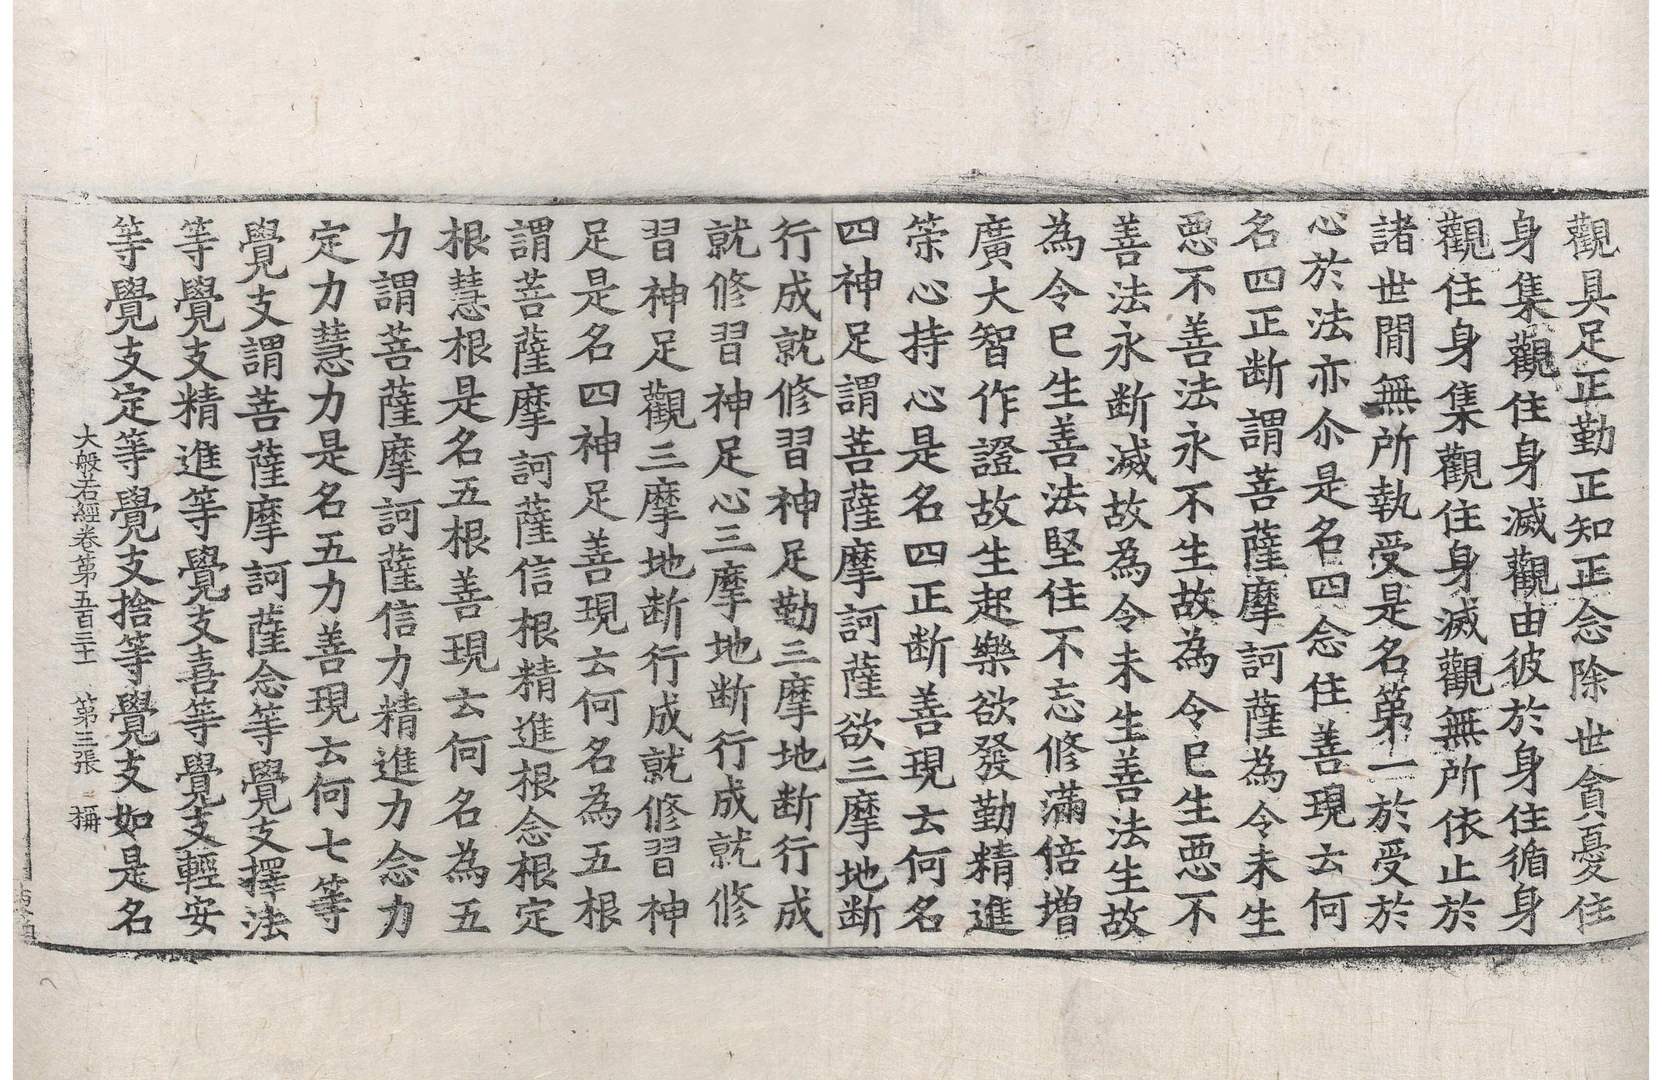 觀具足正勤正知正念除世貪憂住
身集觀住身滅觀由彼於身住循身
觀住身集觀住身滅觀無所依止於
諸世間無所執受是名第一於受於
心於法亦尒是名四念住善現云何
名四正断謂菩薩摩訶薩為令未生
惡不善法永不生故為令已生惡不
善法永断滅故為令未生善法生故
為令已生善法堅住不忘修滿倍增
廣大智作證故生起樂欲發勤精進
策心持心是名四正断善現云何名
四神足謂菩薩摩訶薩欲三摩地断
行成就修習神足勤三摩地断行成
就修習神足心三摩地断行成就修
習神足觀三摩地断行成就修習神
足是名四神足善現云何名為五根
謂菩薩摩訶薩信根精進根念根定
根慧根是名五根善現云何名為五
力謂菩薩摩訶薩信力精進力念力
定力慧力是名五力善現云何七等
覺支謂菩薩摩訶薩念等覺支擇法
等覺支精進等覺支喜等覺支輕安
等覺支定等覺支捨等覺支如是名
大般若經卷第五百三十 第三張 稱